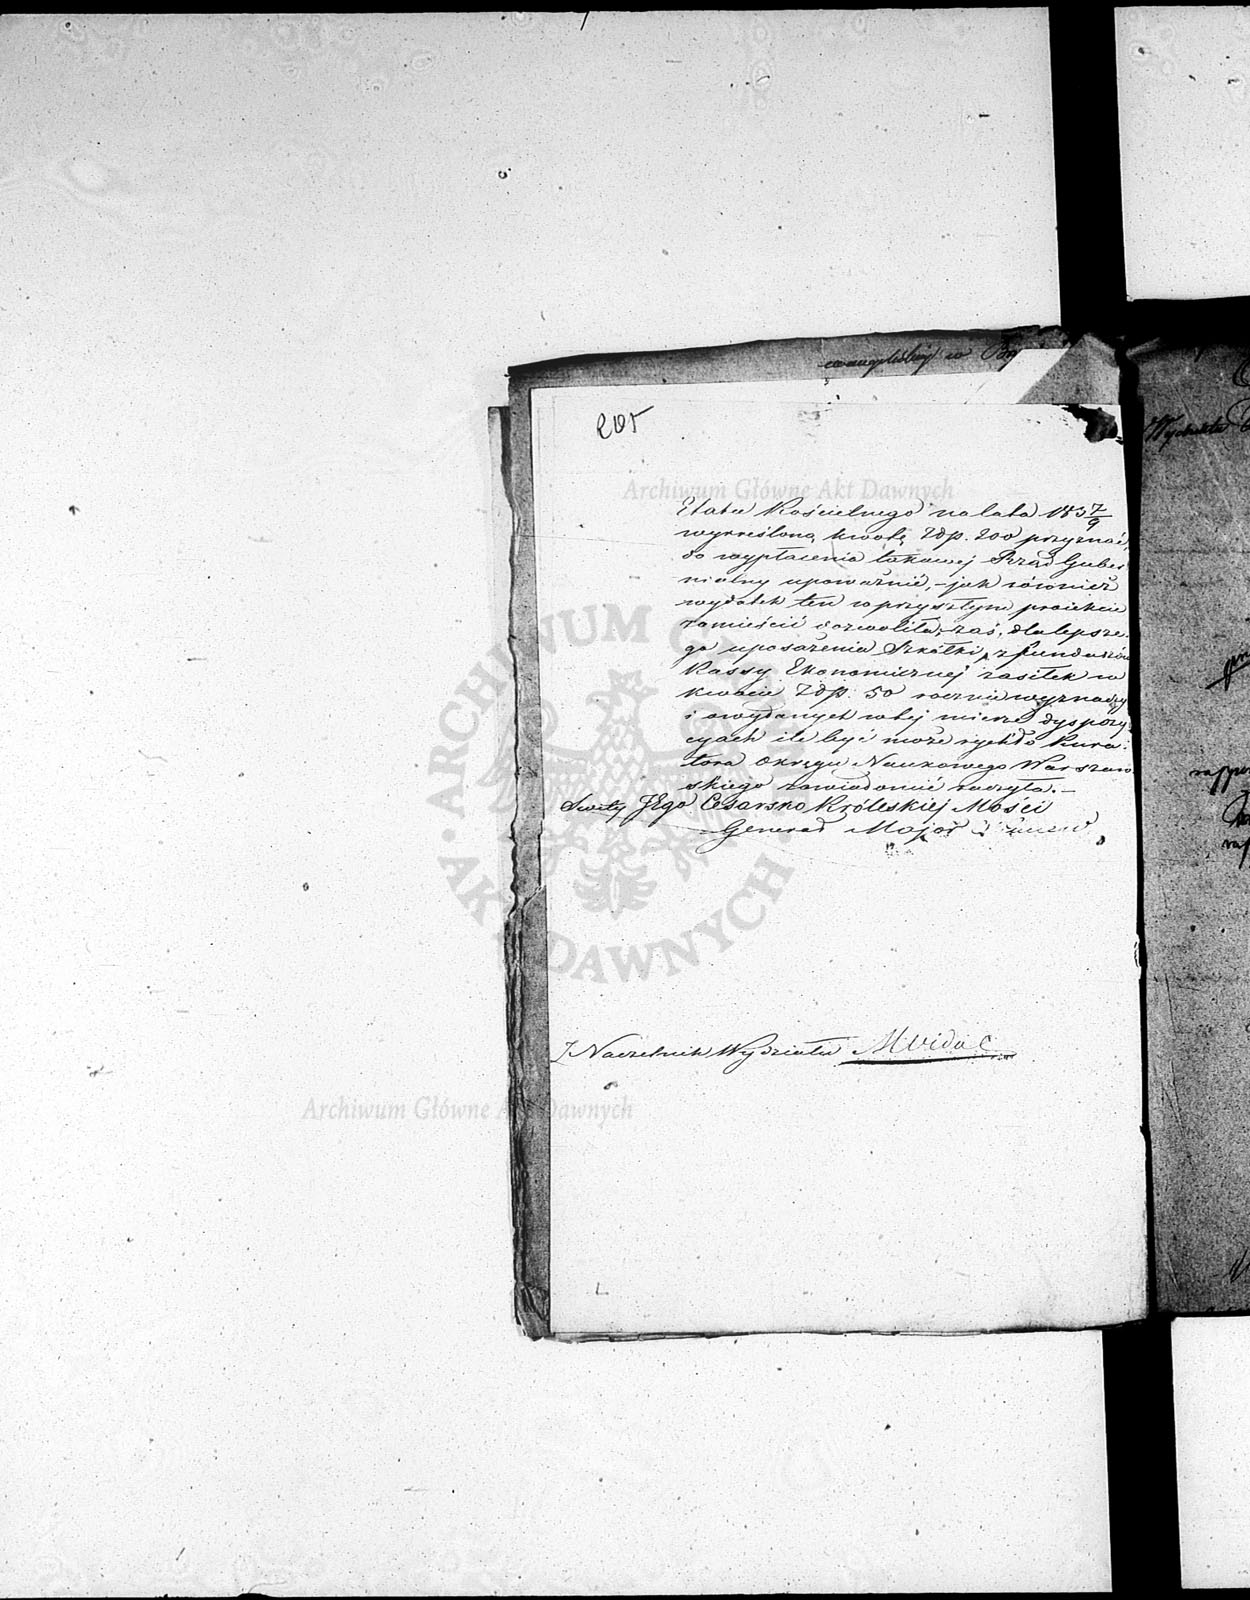 ewangelickiej w
205
Etatu Kościelnego na lata 1837/9
wykreśloną kwotę Złp. 200 przyznać,
do wypłacenia takowej Rząd Guber
nialny upoważnić, – jak również
wydatek ten w przyszłym proiekcie
zamieścić dozwoliła, zaś, dla lepsze-
go uposażenia Szkółki, z funduszów
Kassy Ekonomicznej zasiłek w
kwocie Złp. 50 rocznie wyznaczy
i o wydanych w tej mierze dyspozy
cyach ile być może rychło Kura-
tora Okręgu Naukowego Warszaw
skiego zawiadomić raczyła. –
Świty JEgo Cesarsko Królewskiej Mości
Generał Major
Naczelnik Wydziału
Archiwum Główne Akt Dawnych
Archiwum Główne Akt Dawnych
ARCHIWUM GŁÓWNE AKT DAWNYCH